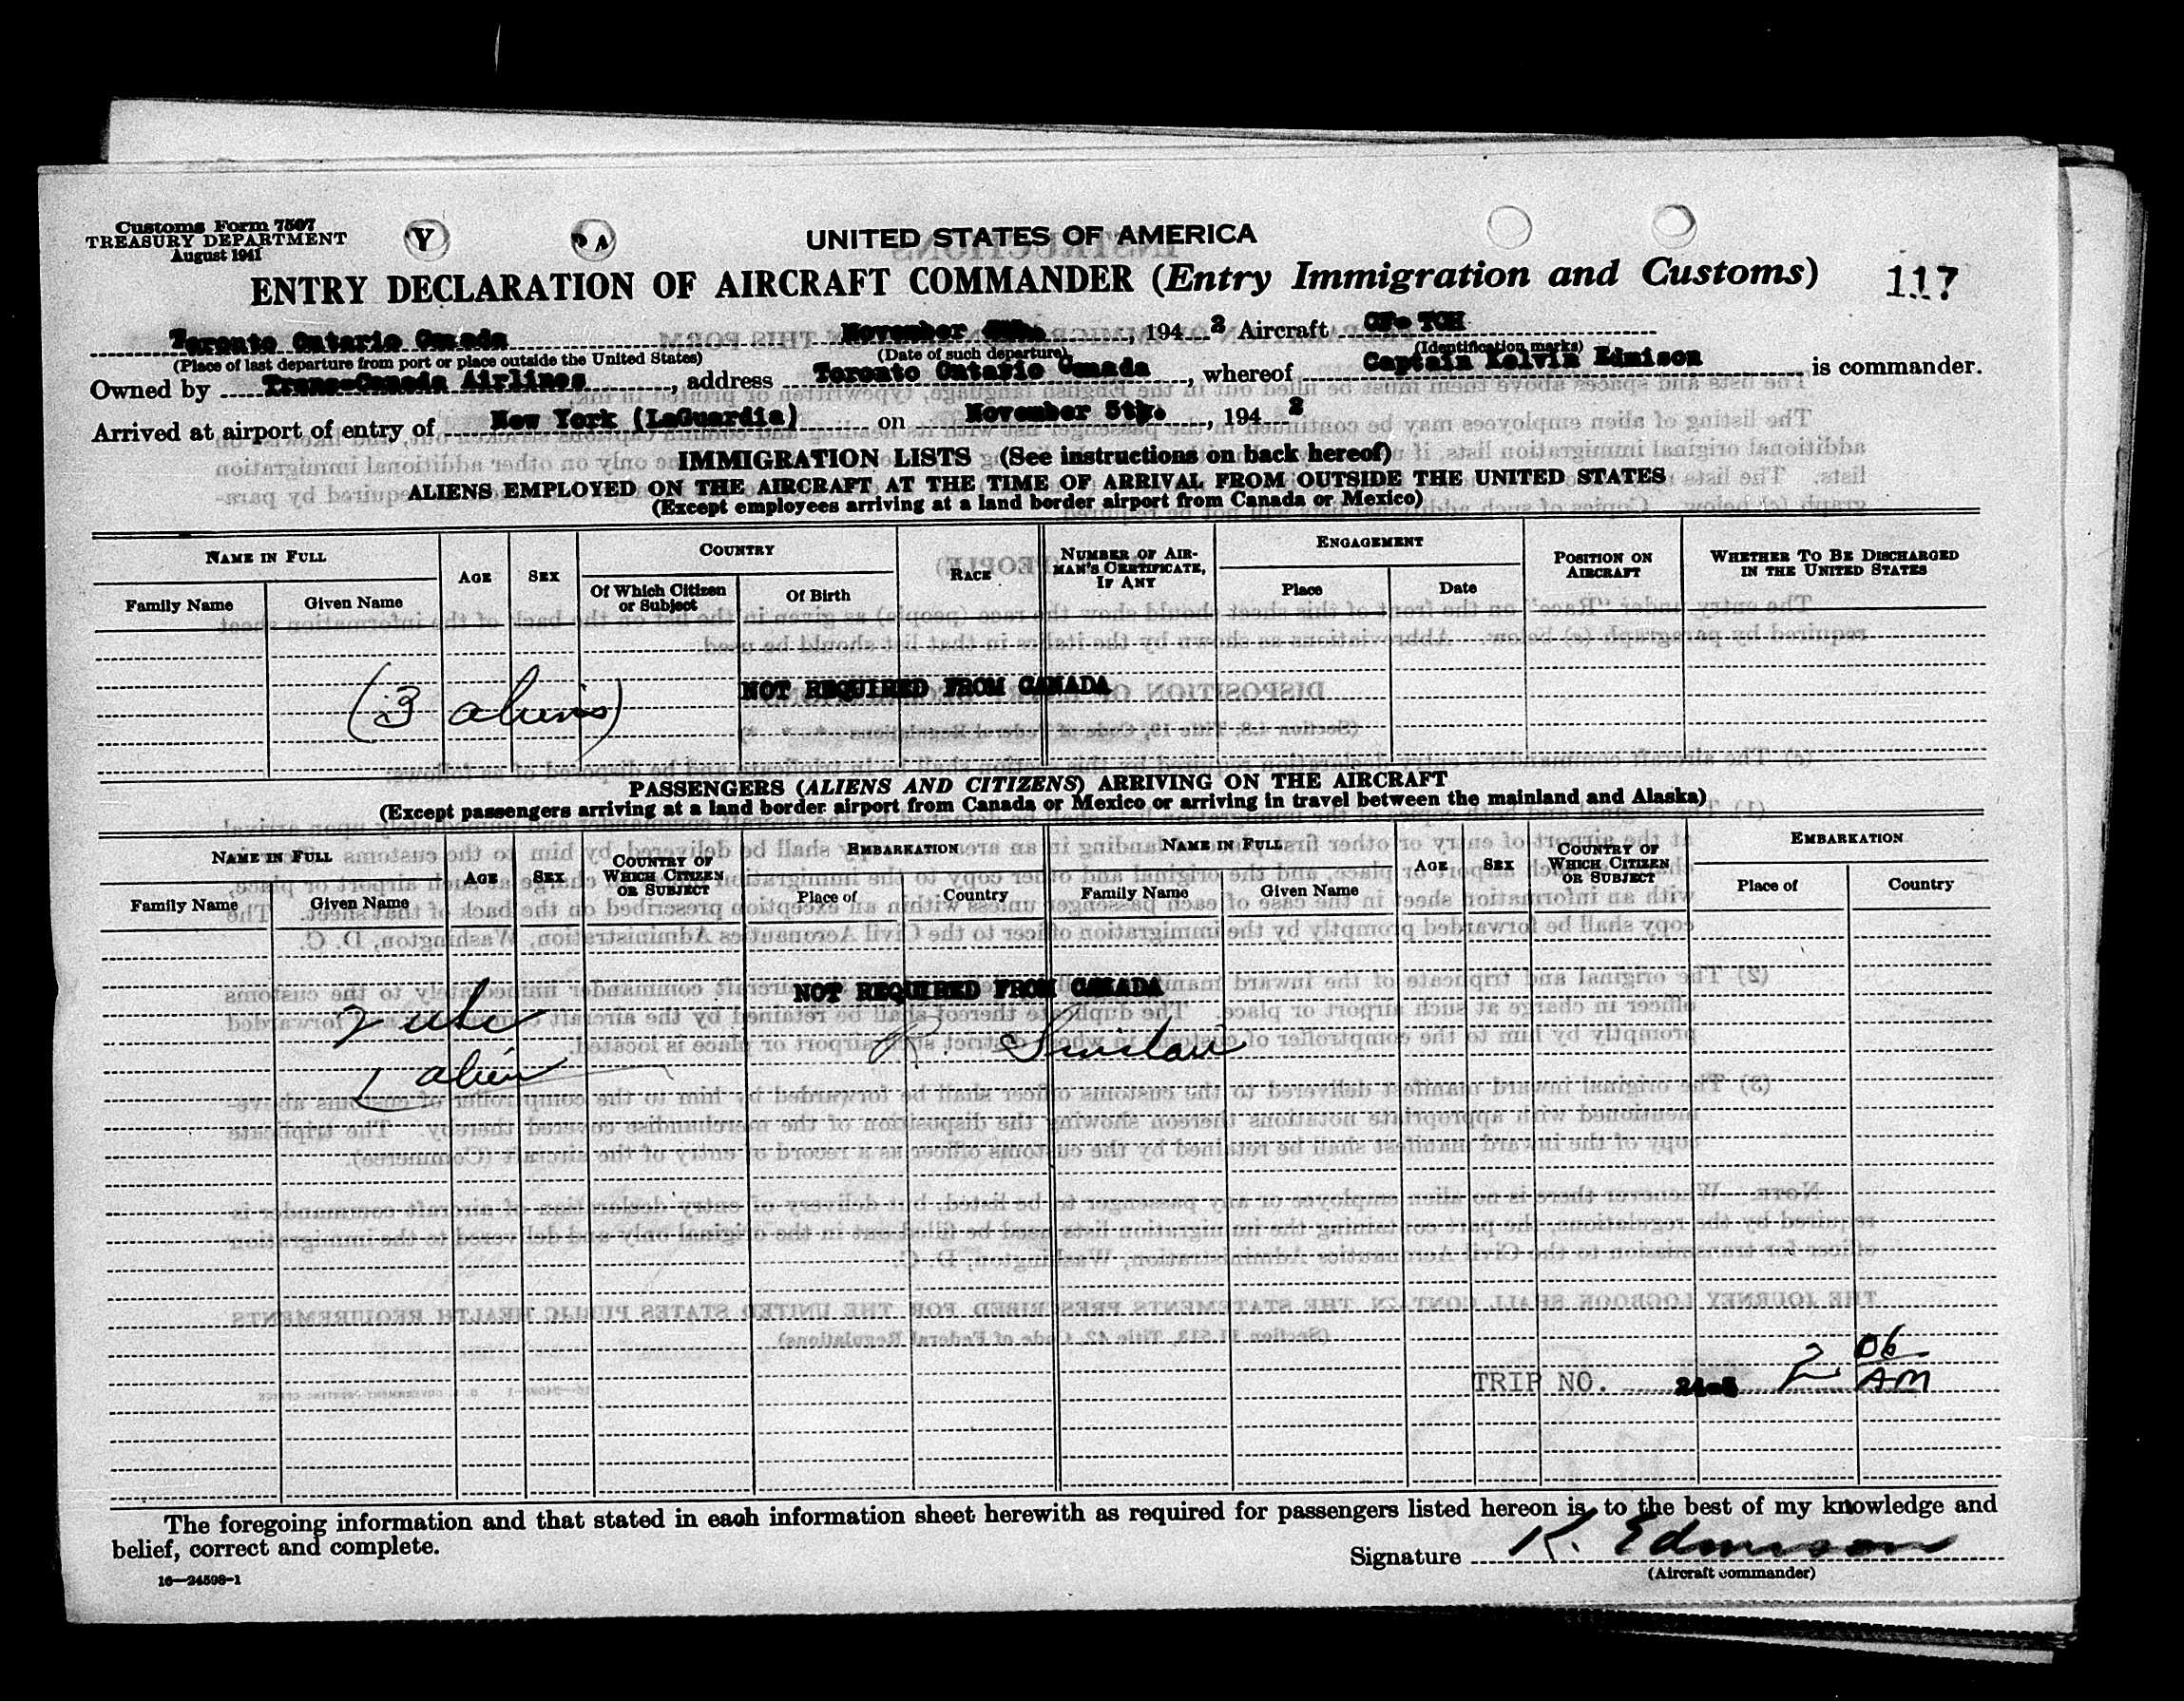 Customs Form 7507
TREASURY DEPARTMENT
August 1941
Y
UNITED STATES OF AMERICA
ENTRY DECLARATION OF AIRCRAFT COMMANDER (Entry Immigration and Customs)
117
Toronto Ontario Canada November , 194 2 Aircraft CF- TCH
(Place of last departure from port or place outside the United States) (Date of such departure) (Identification marks)
Owned by Trans-Canada Airlines, address Toronto Ontario Canada, whereof Captain Kelvin Edmison is commander.
Arrived at airport of entry of New York (LaGuardia) on November 5th., 194 2
IMMIGRATION LISTS (See instructions on back hereof)
ALIENS EMPLOYED ON THE AIRCRAFT AT THE TIME OF ARRIVAL FROM OUTSIDE THE UNITED STATES
(Except employees arriving at a land border airport from Canada or Mexico)
NAME IN FULL AGE SEX COUNTRY RACE NUMBER OF AIRMAN'S CERTIFICATE, IF ANY ENGAGEMENT POSITION ON AIRCRAFT WHETHER TO BE DISCHARGED IN THE UNITED STATES
Family Name Given Name Of Which Citizen or Subject Of Birth Place Date
(3 aliens) NOT REQUIRED FROM CANADA
PASSENGERS (ALIENS AND CITIZENS) ARRIVING ON THE AIRCRAFT
(Except passengers arriving at a land border airport from Canada or Mexico or arriving in travel between the mainland and Alaska)
NAME IN FULL AGE SEX COUNTRY OF WHICH CITIZEN OR SUBJECT EMBARKATION NAME IN FULL AGE SEX COUNTRY OF WHICH CITIZEN OR SUBJECT EMBARKATION
Family Name Given Name Place of Country Family Name Given Name Place of Country
NOT REQUIRED FROM CANADA
R. Sinclair
alien
TRIP NO. 24-5 2 06 AM
The foregoing information and that stated in each information sheet herewith as required for passengers listed hereon is, to the best of my knowledge and
belief, correct and complete.
Signature K. Edmison
(Aircraft commander)
16—24598-1